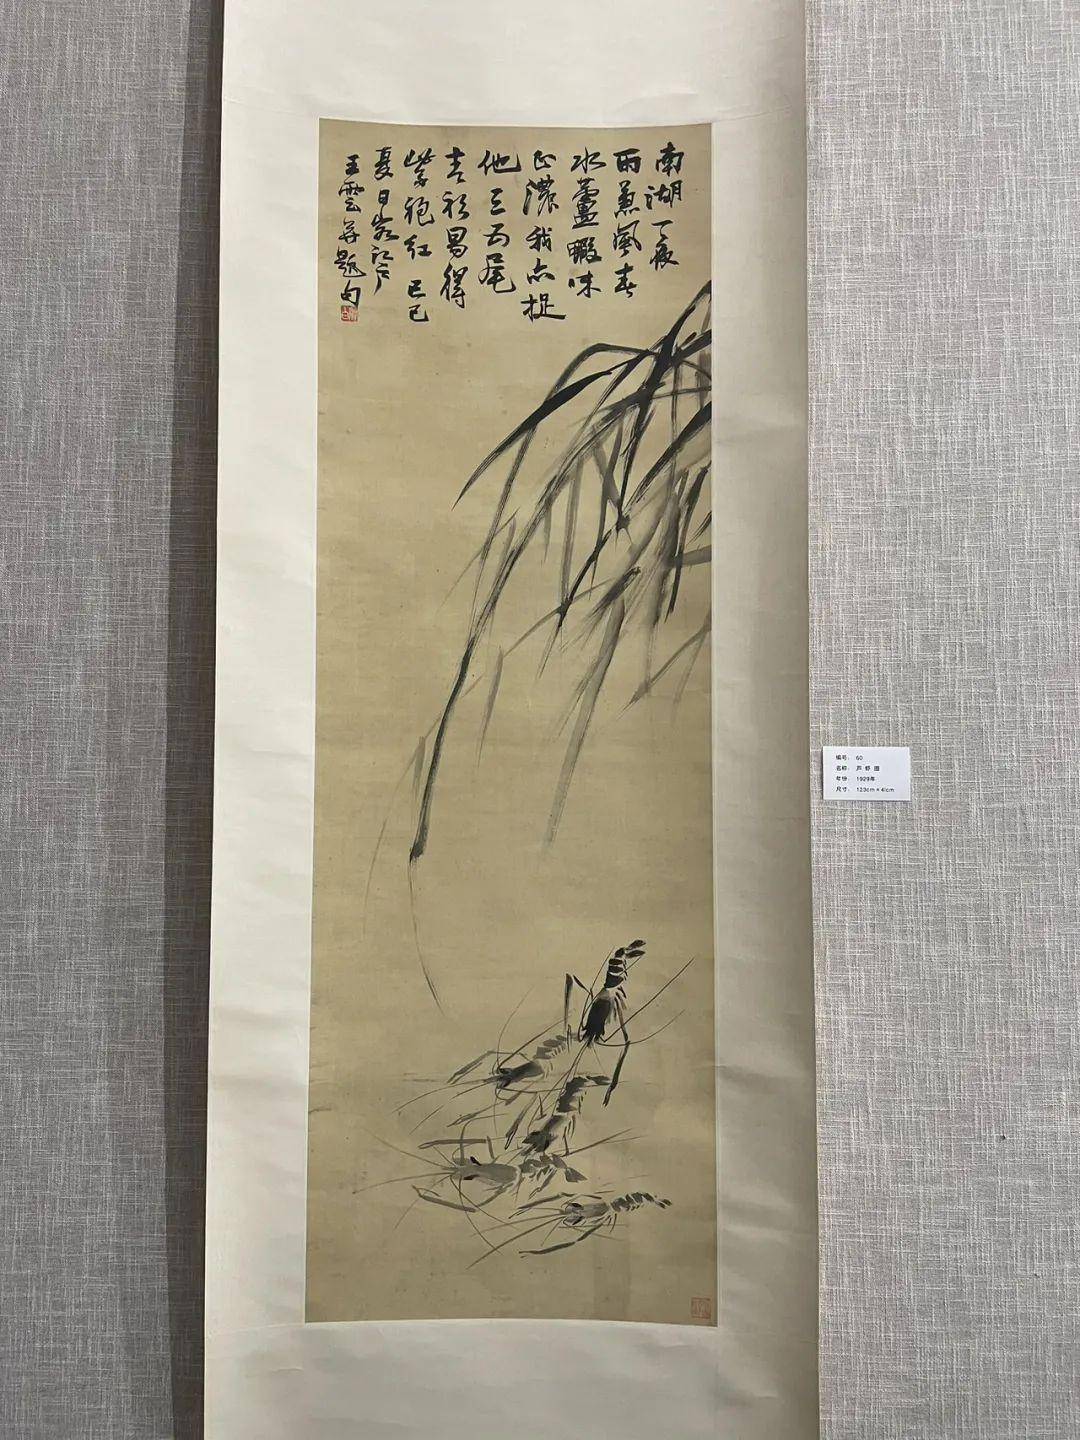 南湖一夜
雨兼風春
水蘆蝦味
正濃我亦捉
他三五尾
青衫易得
紫袍紅 己巳
夏日客江户
王雲并題句
编号： 60
名称： 芦 虾 图
年份： 1929年
尺寸： 123cm×41cm